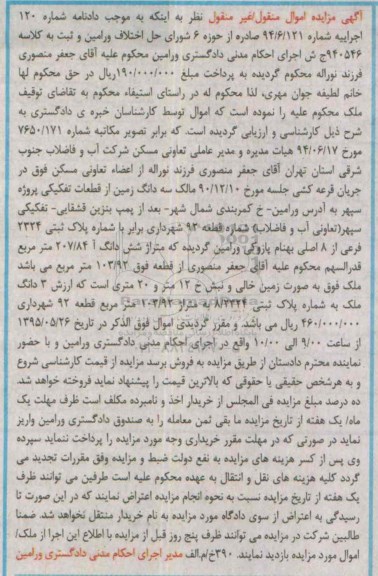 آگهی مزایده اموال منقول/غیر منقول نظر به اینکه به موجب دادنامه شماره ۱۲۰
اجراییه شماره ۹۴/۶/۱۲۱ صادره از حوزه ۶ شورای حل اختلاف ورامین و ثبت به کلاسه
۹۴۰۵۴۶ج ش اجرای احکام مدنی دادگستری ورامین محکوم علیه آقای جعفر منصوری
فرزند نوراله محکوم گردیده به پرداخت مبلغ ۱۹۰/۰۰۰/۰۰۰ریال در حق محکوم لها
خانم لطیفه جوان مهری، لذا محکوم له در راستای استیفاء محکوم به تقاضای توقیف
ملک محکوم علیه را نموده است که اموال توسط کارشناسان خبره ی دادگستری به
شرح ذیل کارشناسی و ارزیابی گردیده است. که برابر تصویر مکاتبه شماره ۷۶۵۰/۱۷۱
مورخ ۹۴/۰۶/۱۷ هیات مدیره و مدیر عاملی تعاونی مسکن شرکت آب و فاضلاب جنوب
شرقی استان تهران آقای جعفر منصوری فرزند نوراله از اعضاء تعاونی مسکن فوق در
جریان قرعه کشی جلسه مورخ ۹۰/۱۲/۱۰ مالک سه دانگ زمین از قطعات تفکیکی پروژه
سپهر به آدرس ورامین- خ کمربندی شمال شهر- بعد از پمپ بنزین قشقایی- تفکیکی
سپهر(تعاونی آب و فاضلاب) شماره قطعه ۹۲ شهرداری برابر با شماره پلاک ثبتی ۲۳۲۴
فرعی از ۸ اصلی بهنام پازوکی ورامین گردیده که متراژ شش دانگ آ ۲۰۷/۸۴ متر مربع
قدرالسهم محکوم علیه آقای جعفر منصوری از قطعه فوق ۱۰۳/۹۲ متر مربع می باشد
ملک فوق به صورت زمین خالی و نبش خ ۱۲ متر و ۲۰ متری است که ارزش ۳ دانگ
ملک به شماره پلاک ثبتی ۸/۲۳۲۴ به متراژ ۱۰۳/۹۲ متر مربع قطعه ۹۲ شهرداری
۴۶۰/۰۰۰/۰۰۰ ریال می باشد. و مقرر گردیدی اموال فوق الذکر در تاریخ ۱۳۹۵/۰۵/۲۶
از ساعت ۹/۰۰ الی ۱۰/۰۰ واقع در اجرای احکام مدنی دادگستری ورامین و با حضور
نماینده محترم دادستان از طریق مزایده به فروش برسد مزایده از قیمت کارشناسی شروع
و به هرشخص حقیقی یا حقوقی که بالاترین قیمت را پیشنهاد نماید فروخته خواهد شد.
ده درصد مبلغ مزایده فی المجلس از خریدار اخذ و نامبرده مکلف است ظرف مهلت یک
ماه/ یک هفته از تاریخ مزایده ما بقی ثمن معامله را به صندوق دادگستری ورامین واریز
نماید در صورتی که در مهلت مقرر خریداری وجه مورد مزایده را پرداخت ننماید سپرده
وی پس از کسر هزینه های مزایده به نفع دولت ضبط و مزایده وفق مقررات تجدید می
گردد کلیه هزینه های نقل و انتقال به عهده محکوم علیه است طرفین می توانند ظرف
یک هفته از تاریخ مزایده نسبت به نحوه انجام مزایده اعتراض نمایند که در این صورت تا
رسیدگی به اعتراض از سوی دادگاه مورد مزایده به نام خریدار منتقل نخواهد شد. ضمنا
طالبین شرکت در مزایده می توانند ظرف پنج روز قبل از مزایده با اطلاع این اجرا از ملک/
اموال مورد مزایده بازدید نمایند. ۳۹۰خ/م.الف مدیر اجرای احکام مدنی دادگستری ورامین